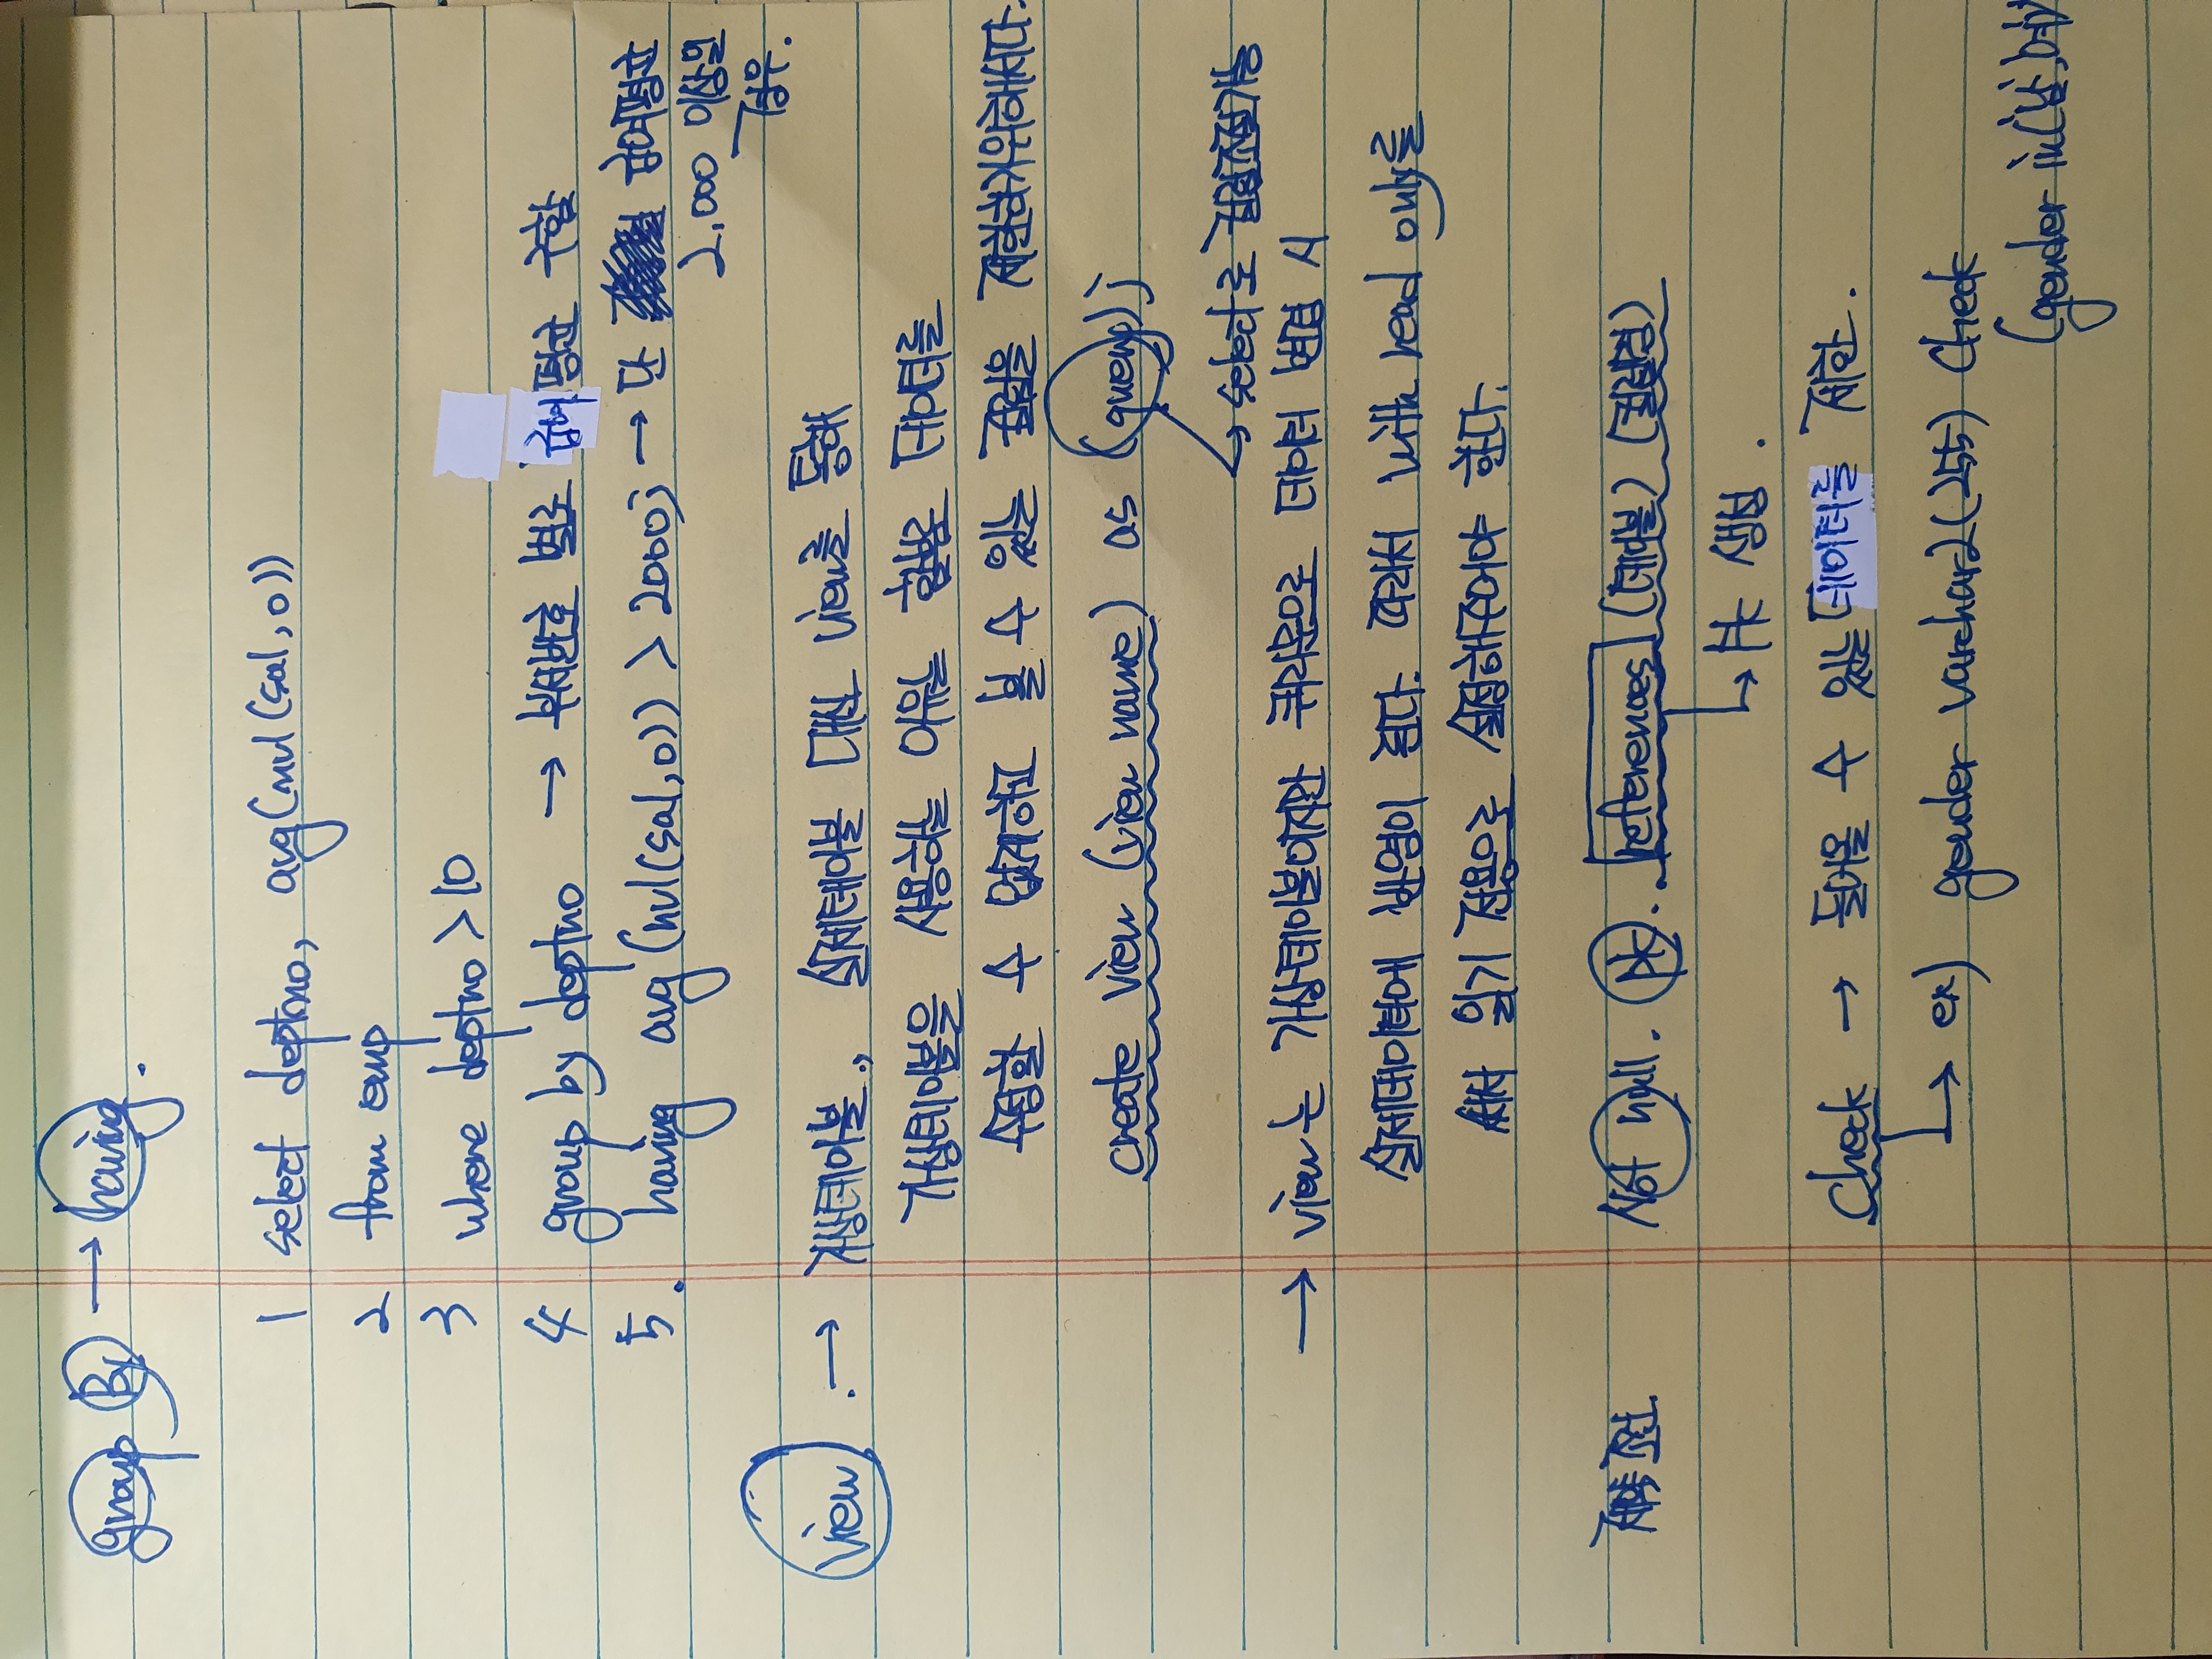 group By → having.
1 select deptno, avg(nvl(sal,0))
2 from emp
3 where deptno > 10
4 group by deptno → 부서번호 별로 급여평균 구함
5. having avg(nvl(sal,0)) > 2000; → 단 급여평균
2,000 이상일
경우.
view. → 가상테이블., 실제테이블 대신 view를 통해
가상테이블을 사용하는 이유는 함부로 데이터를
수정할 수 없게하고 볼 수 있는 컬럼을 제한하기위해서다.
create view (view name) as (query);
↳ select로 컬럼조절가능
→ view는 가상테이블이지만 쿼리문으로 데이터 변경 시
실제데이터에 반영이 된다. 따라서 with read only를
써서 읽기 전용으로 설정해주어야 한다.
제약 조건 Not null. pk. references (테이블) (컬럼명)
↳ fk 생성.
check → 들어올 수 있는 데이터를 제한.
↳ ex) gender varchar2(255) check
(gender in('남','여'))